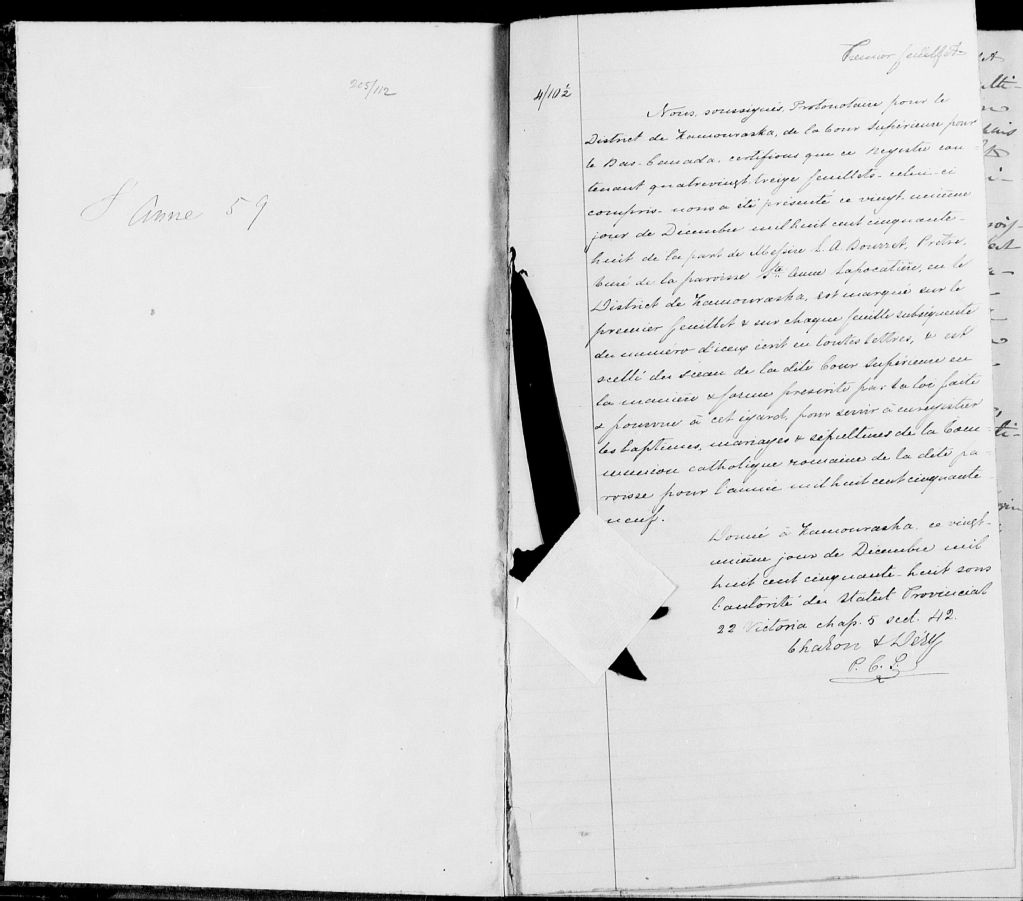 205/112
St Anne 59
Premier feuillet
4/102
Nous, soussignés, Protonotaire pour le
District de Kamouraska, de la Cour Supérieure pour
le Bas-Canada, certifions que ce Registre con-
tenant quatrevingt treize feuillets - celui-ci
compris - nous a été présenté ce vingt unième
jour de Décembre mil huit cent cinquante-
huit de la part de Messire L. A. Bourret, Prêtre,
Curé de la paroisse Ste Anne Lapocatière, en le
District de Kamouraska, est marqué sur le
premier feuillet & sur chaque feuille subséquente
du numéro d'iceux écrit en toutes lettres, & est
scellé du sceau de la dite Cour Supérieure en
la manière & forme prescrite par la loi faite
& pourvue à cet égard, pour servir à enregistrer
les baptêmes, mariages & sépultures de la Com-
munion catholique romaine de la dite pa-
roisse pour l'année mil huit cent cinquante-
neuf.
Donné à Kamouraska, ce vingt-
unième jour de Décembre mil
huit cent cinquante-huit sous
l'autorité du Statut Provincial
22 Victoria chap. 5 sect. 42.
& Déry
P. C. S.